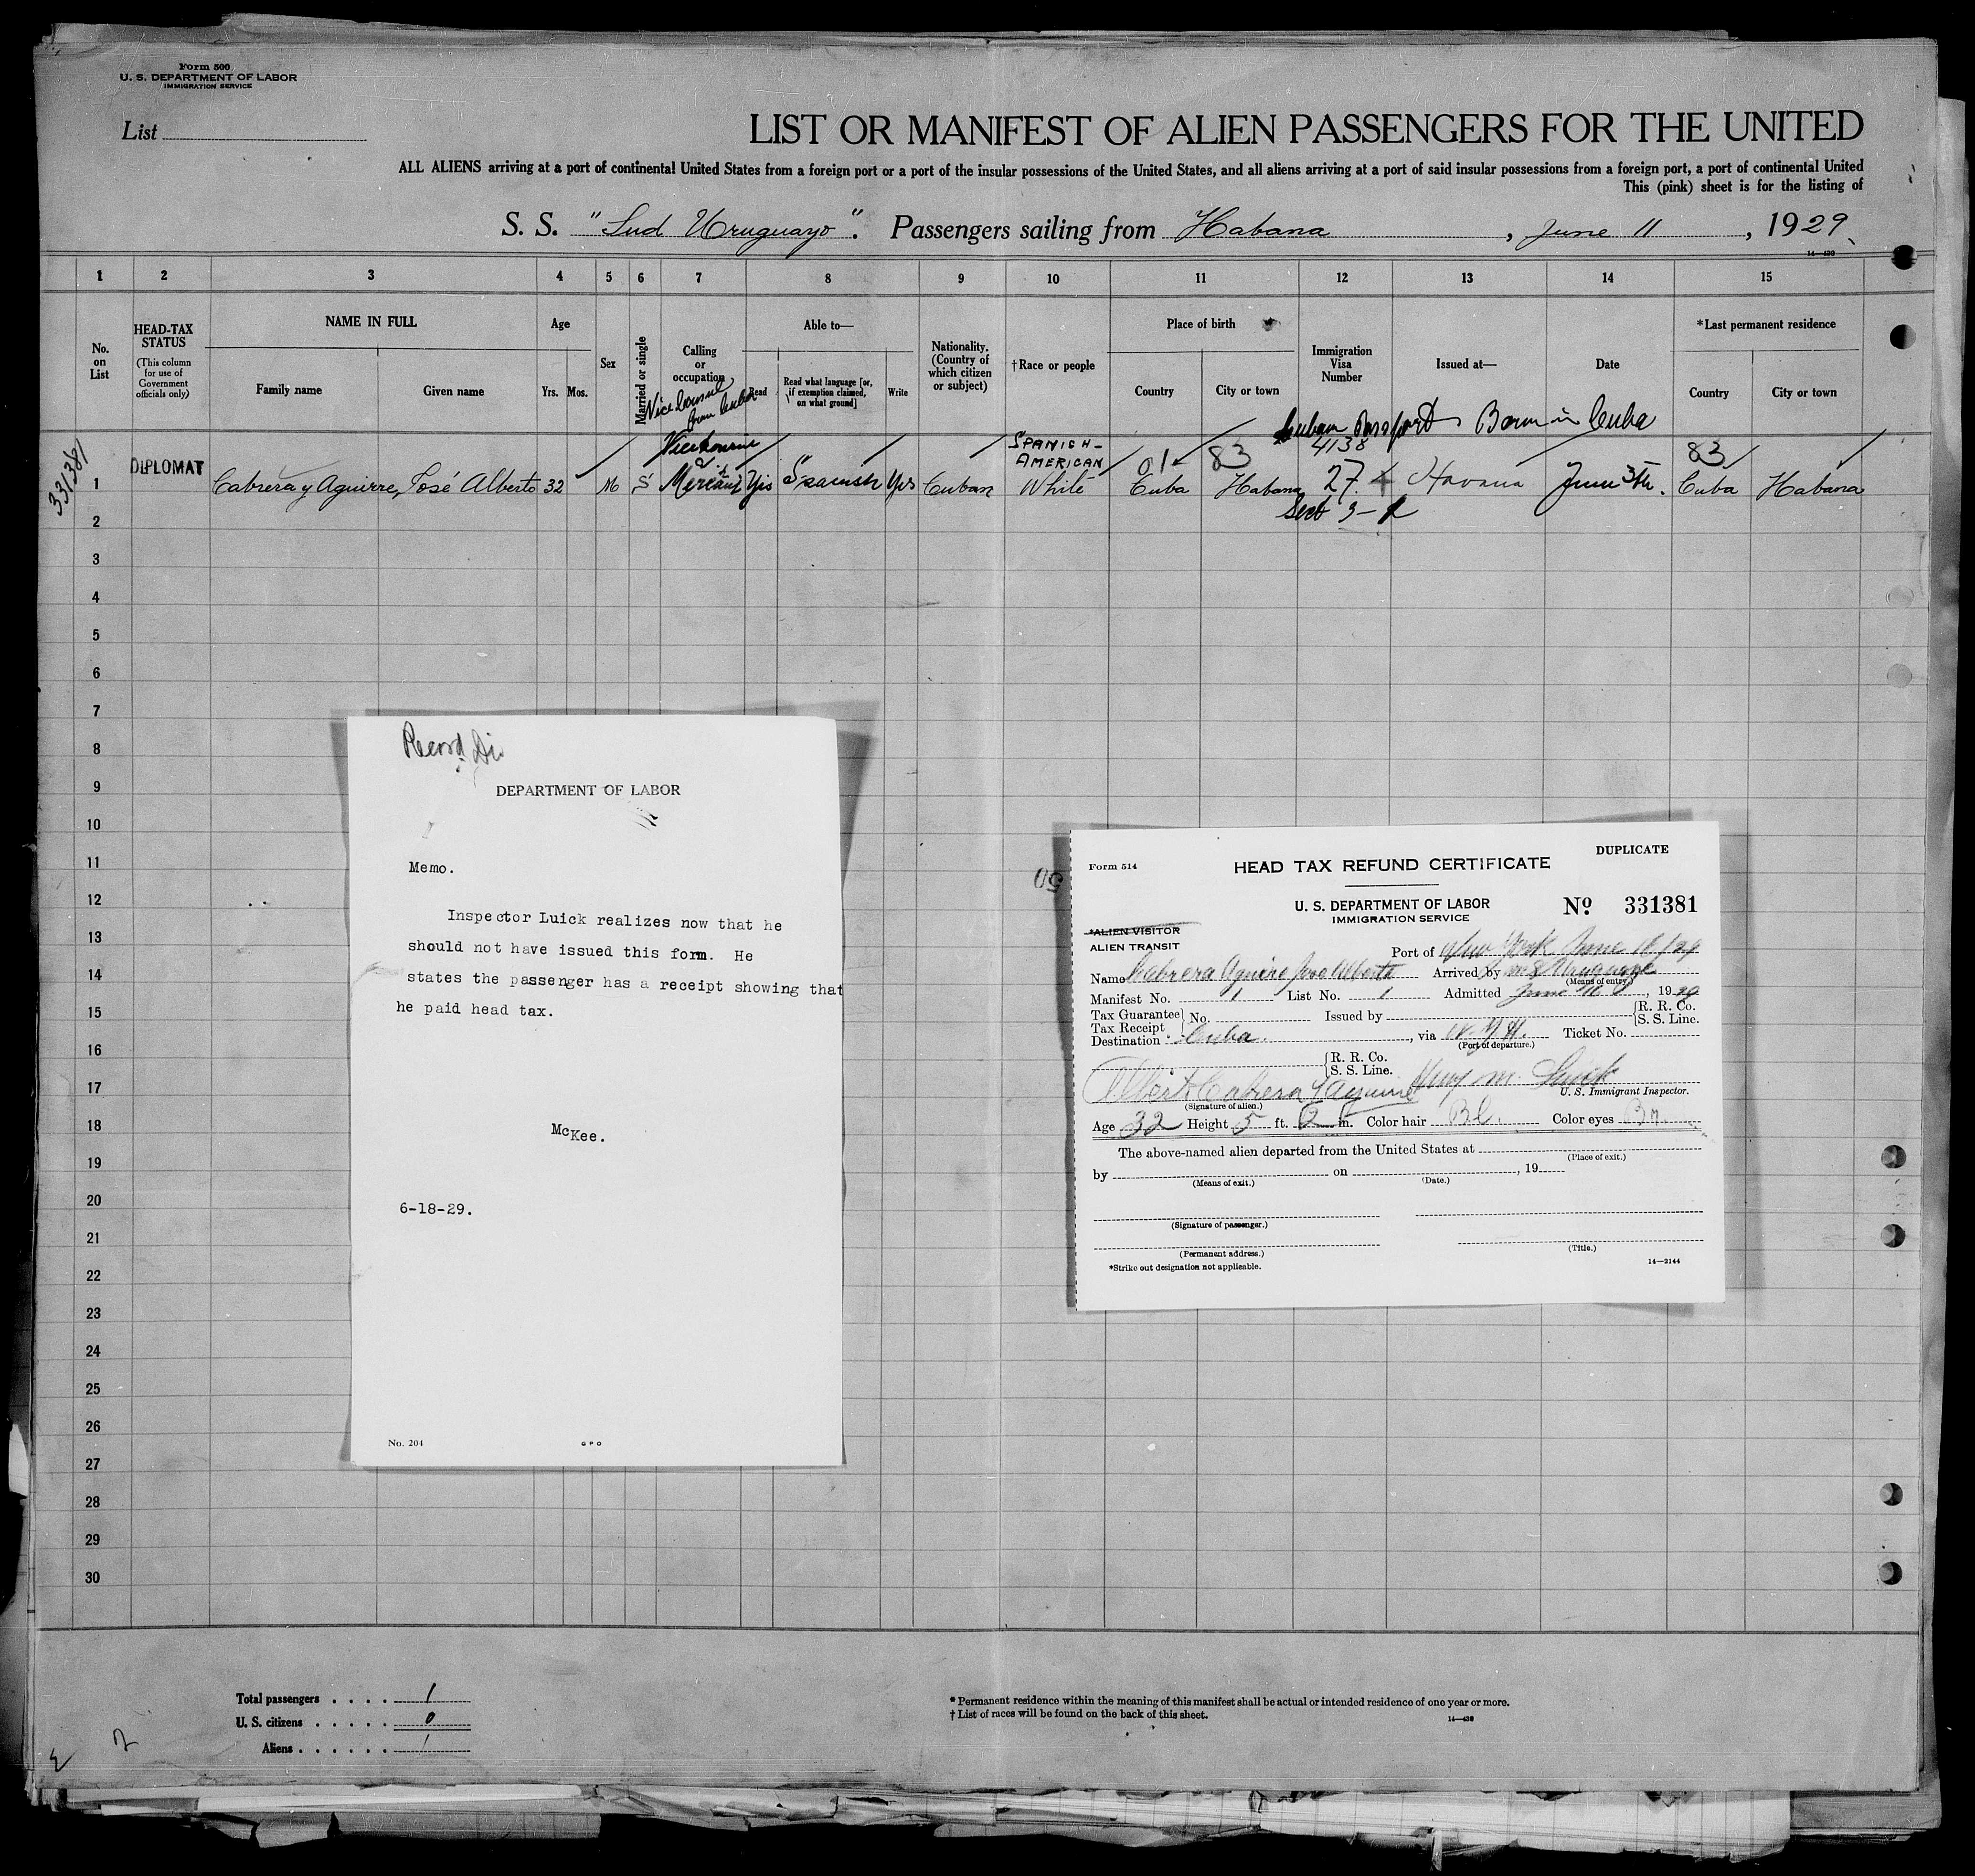 Form 500
U. S. DEPARTMENT OF LABOR
IMMIGRATION SERVICE
List
LIST OR MANIFEST OF ALIEN PASSENGERS FOR THE UNITED
ALL ALIENS arriving at a port of continental United States from a foreign port or a port of the insular possessions of the United States, and all aliens arriving at a port of said insular possessions from a foreign port, a port of continental United
This (pink) sheet is for the listing of
S. S. "Sud Uruguayo". Passengers sailing from Habana, June 11, 1929.
14—430
1 2 3 4 5 6 7 8 9 10 11 12 13 14 15
No. on List
HEAD-TAX STATUS
(This column for use of Government officials only)
NAME IN FULL
Family name
Given name
Age
Yrs. Mos.
Sex
Married or single
Calling or occupation
Vice Consul from Cuba
Able to—
Read
Read what language [or, if exemption claimed, on what ground]
Write
Nationality. (Country of which citizen or subject)
†Race or people
Place of birth
Country
City or town
Immigration Visa Number
Issued at—
Date
*Last permanent residence
Country
City or town
Cuban Passport Born in Cuba
331381
SPANISH-AMERICAN
4138
01 83 83
1 DIPLOMAT Cabrera y Aguirre, José Alberto 32 M S Yes Spanish Yes Cuban White Cuba Habana 27. Havana June 3th. Cuba Habana
Sect 3-1
2
3
4
5
6
7
8
9
10
11
12
13
14
15
16
17
18
19
20
21
22
23
24
25
26
27
28
29
30
Record
DEPARTMENT OF LABOR
Memo.
Inspector Luick realizes now that he
should not have issued this form. He
states the passenger has a receipt showing that
he paid head tax.
McKee.
6-18-29.
No. 204
GPO
50
DUPLICATE
Form 514
HEAD TAX REFUND CERTIFICATE
U. S. DEPARTMENT OF LABOR
IMMIGRATION SERVICE
No 331381
*ALIEN VISITOR
ALIEN TRANSIT
Port of New York June 16/29
Name Cabrera Aguirre Jose Alberto Arrived by
(Means of entry.)
Manifest No. 1 List No. 1 Admitted June 16, 1929
Tax Guarantee
Tax Receipt
No. Issued by
R. R. Co.
S. S. Line.
Destination Cuba., via N. Y. Ticket No.
(Port of departure.)
R. R. Co.
S. S. Line.
Albert Cabrera y Aguirre
(Signature of alien.)
M. Luick
U. S. Immigrant Inspector.
Age 32 Height 5 ft. 2 in. Color hair Bl. Color eyes Bn.
The above-named alien departed from the United States at
(Place of exit.)
by on , 19
(Means of exit.)
(Date.)
(Signature of passenger.)
(Permanent address.)
(Title.)
*Strike out designation not applicable.
14—2144
Total passengers . . . . 1
U. S. citizens . . . . . 0
Aliens . . . . . . 1
* Permanent residence within the meaning of this manifest shall be actual or intended residence of one year or more.
† List of races will be found on the back of this sheet.
14—430